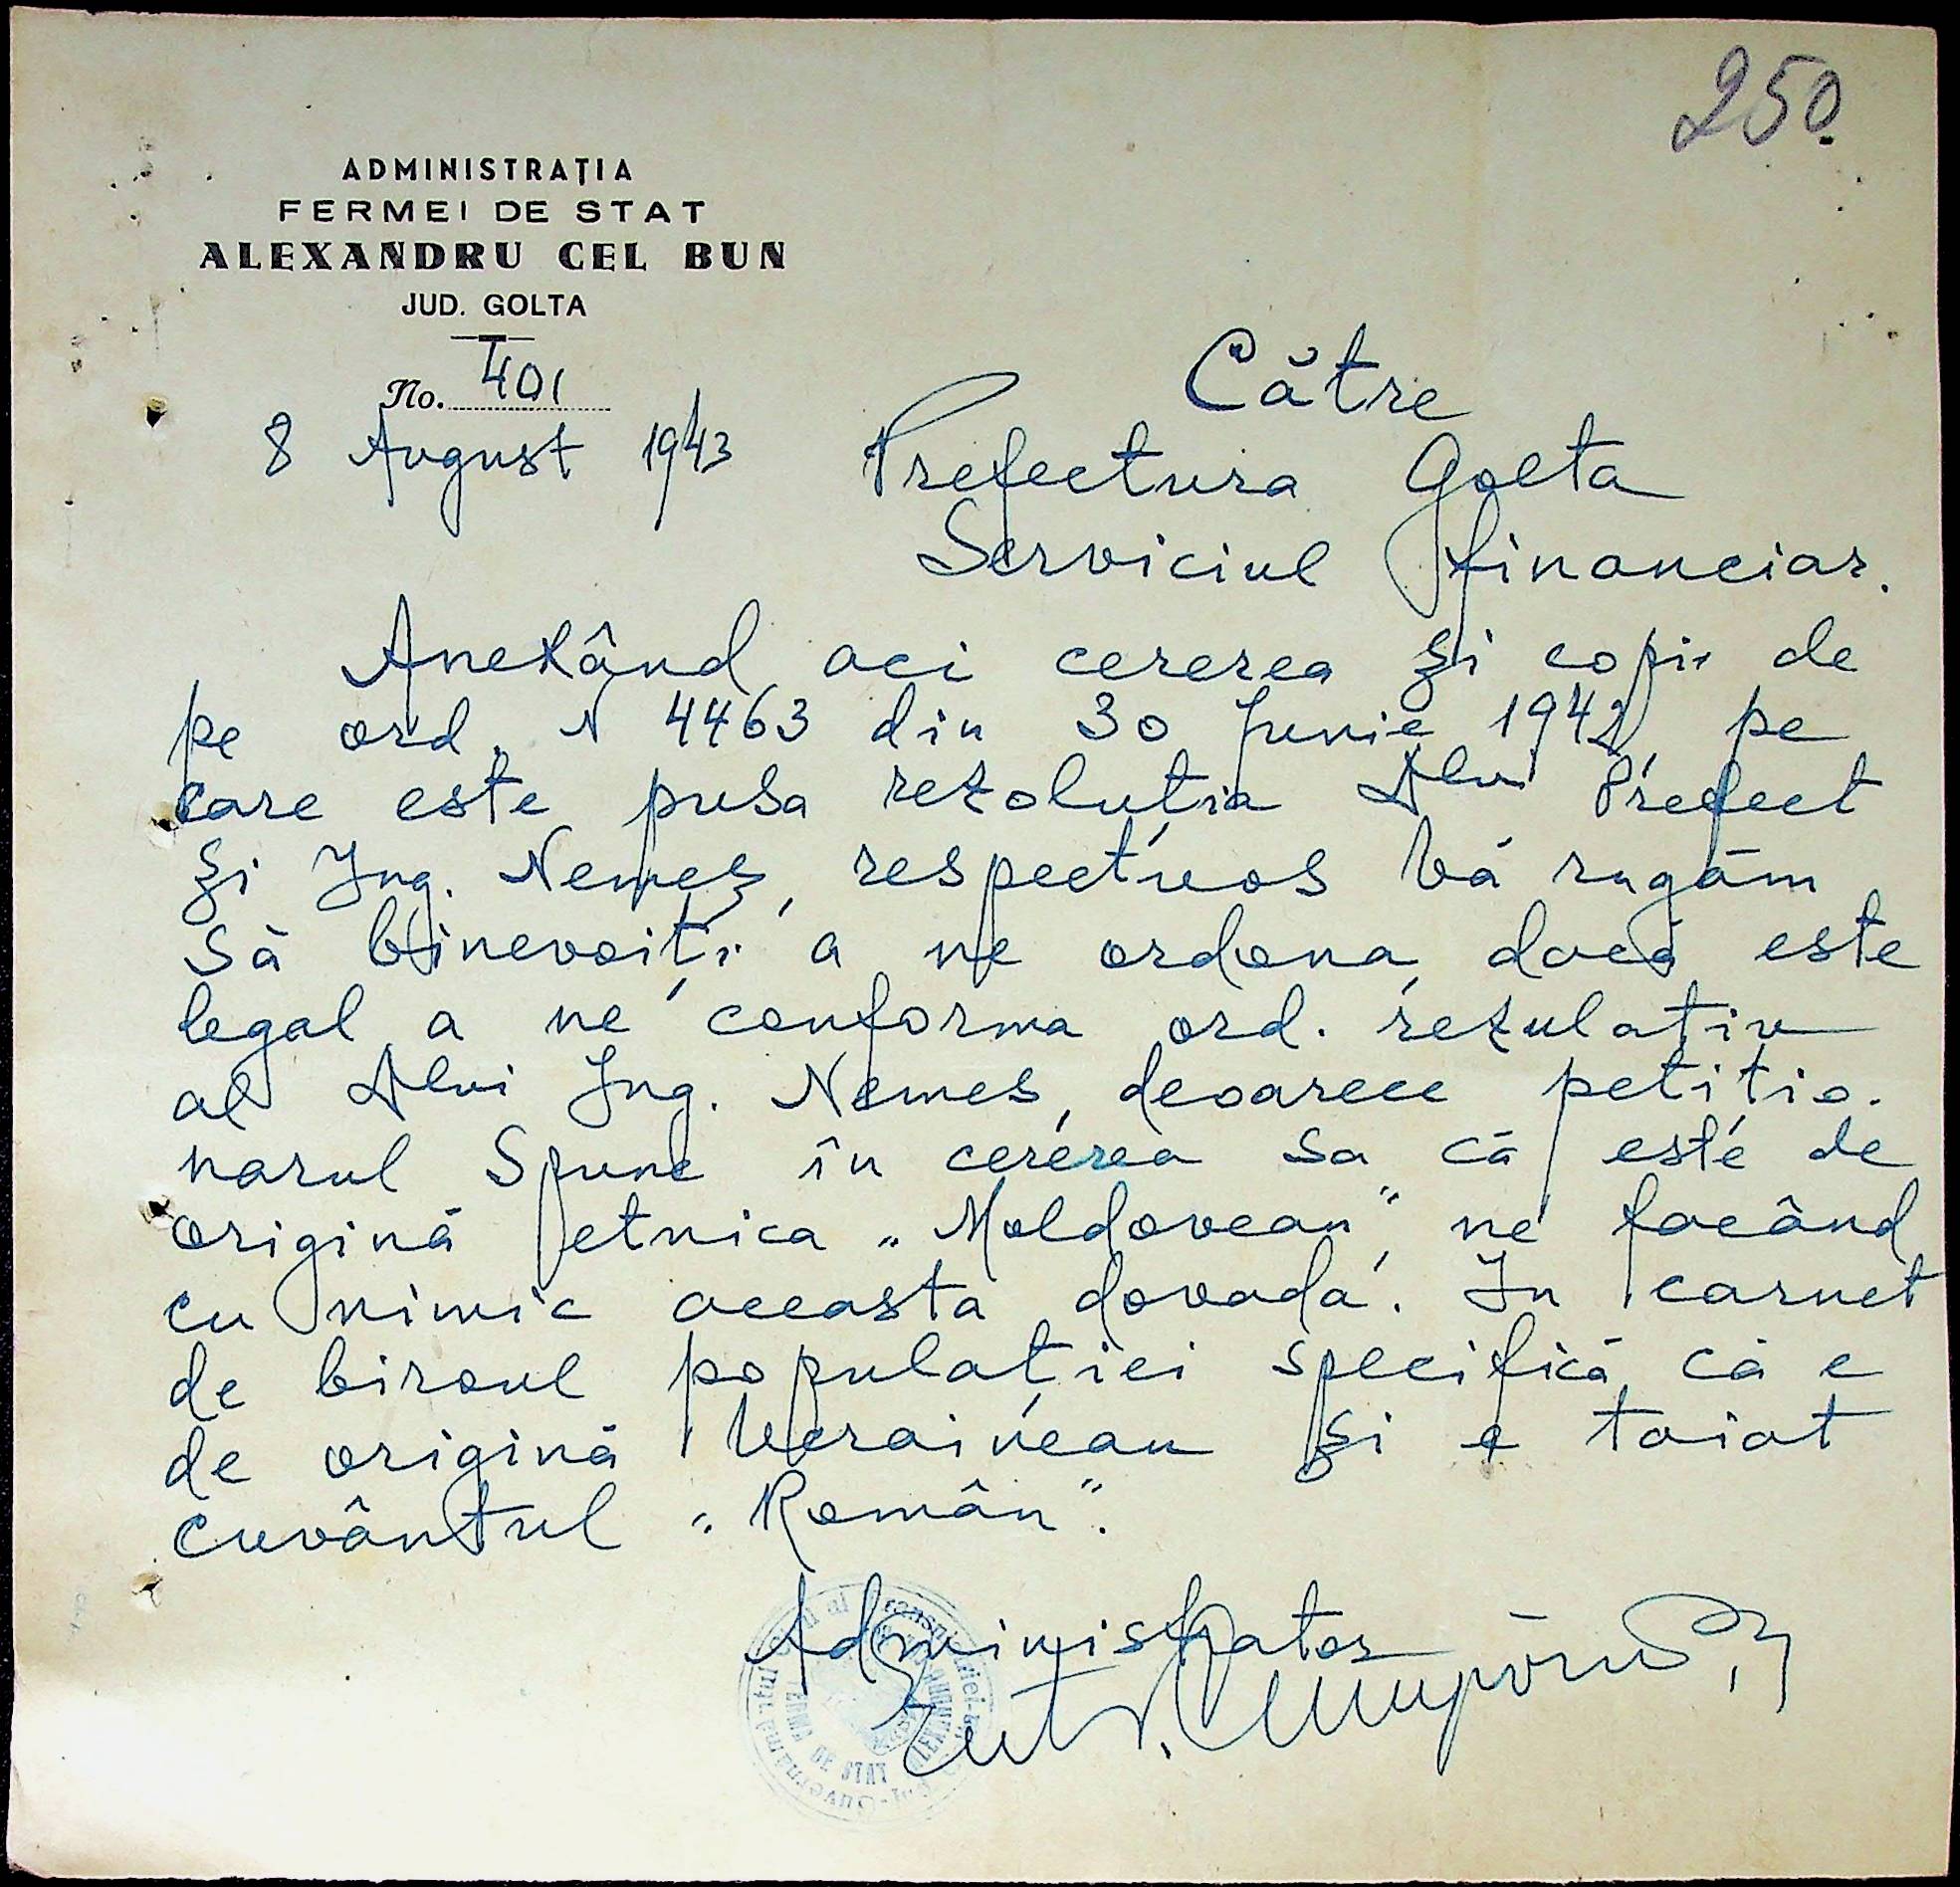 250.
ADMINISTRAȚIA
FERMEI DE STAT
ALEXANDRU CEL BUN
JUD. GOLTA
No. 401
8 August 1943
Către
Prefectura Golta
Serviciul financiar.
Anexând aci cererea și copie de
pe ord. N 4463 din 30 Junie 1942, pe
care este pusa rezoluția Dlui Prefect
și Ing. Nemeș, respectuos Vă rugăm
să binevoiți a ne ordona dacă este
legal a ne conforma ord. rezulativ
al Dlui Ing. Nemes, deoarece petitio.
narul spune în cererea sa că este de
origină etnica „Moldovean", ne facând
cu nimic aceasta dovadă. In carnet
de biroul populației specifică că e
de origină Ucrainean și e taiat
cuvântul „Român".
Administrator
FERMA DE STAT